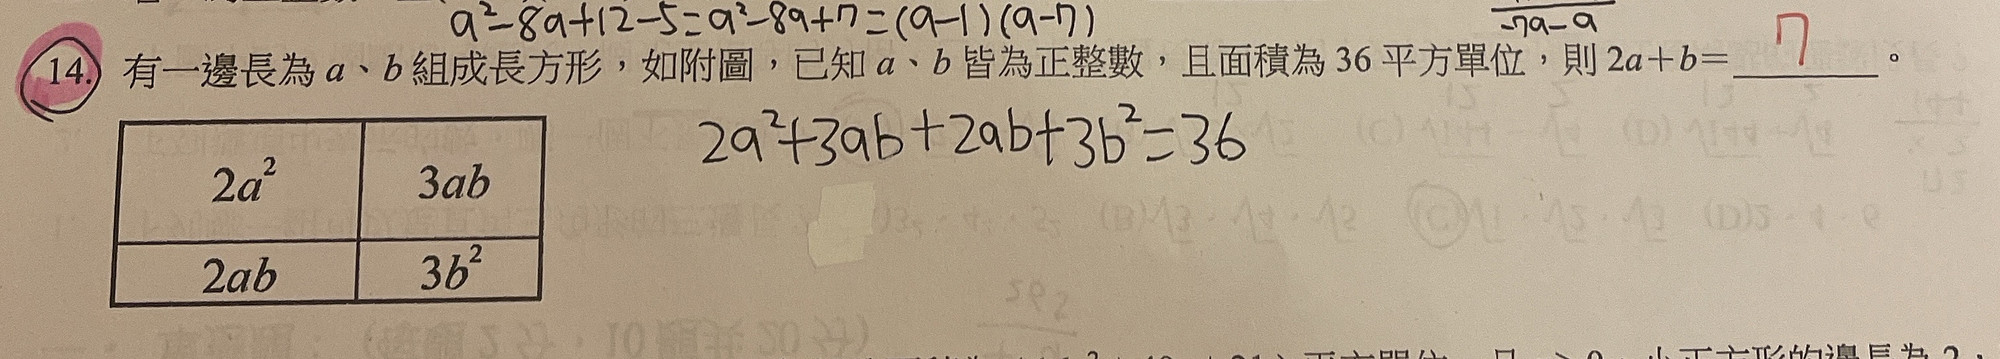 a²-8a+12-5=a²-8a+7=(a-1)(a-7)
-7a-a
14. 有一邊長為 a、b 組成長方形，如附圖，已知 a、b 皆為正整數，且面積為 36 平方單位，則 2a+b= 7 。
2a²+3ab+2ab+3b²=36
2a² 3ab
2ab 3b²